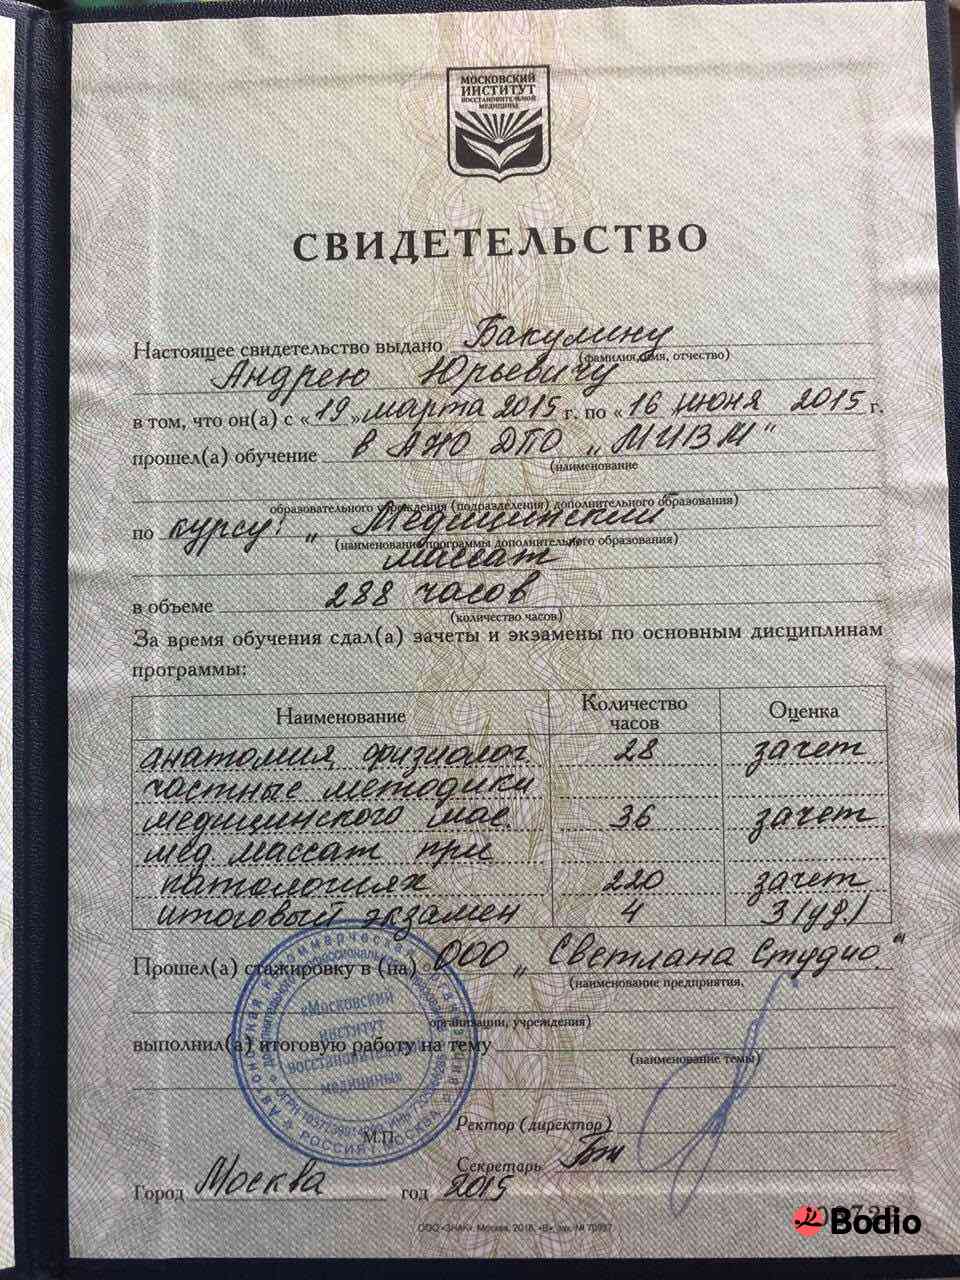 МОСКОВСКИЙ
ИНСТИТУТ
ВОССТАНОВИТЕЛЬНОЙ
МЕДИЦИНЫ
СВИДЕТЕЛЬСТВО
Настоящее свидетельство выдано Бакулину
(фамилия, имя, отчество)
Андрею Юрьевичу
в том, что он(а) с «19» марта 2015 г. по «16 июня 2015 г.
прошел(а) обучение в АНО ДПО „МИВМ"
(наименование
образовательного учреждения (подразделения) дополнительного образования)
по курсу: „Медицинский
(наименование программы дополнительного образования)
массаж"
в объеме 288 часов
(количество часов)
За время обучения сдал(а) зачеты и экзамены по основным дисциплинам
программы:
Наименование Количество часов Оценка
анатомия, физиолог. 28 зачет
частные методики
медицинского мас. 36 зачет
мед. массаж при
патологиях 220 зачет
итоговый экзамен 4 3 (уд.)
Прошел(а) стажировку в (на) ООО „Светлана Студио"
(наименование предприятия,
организации, учреждения)
выполнил(а) итоговую работу на тему
(наименование темы)
«Московский
институт
восстановительной
медицины»
М.П.
Ректор (директор)
Секретарь
Город Москва год 2015
ООО «ЗНАК», Москва,
Bodio